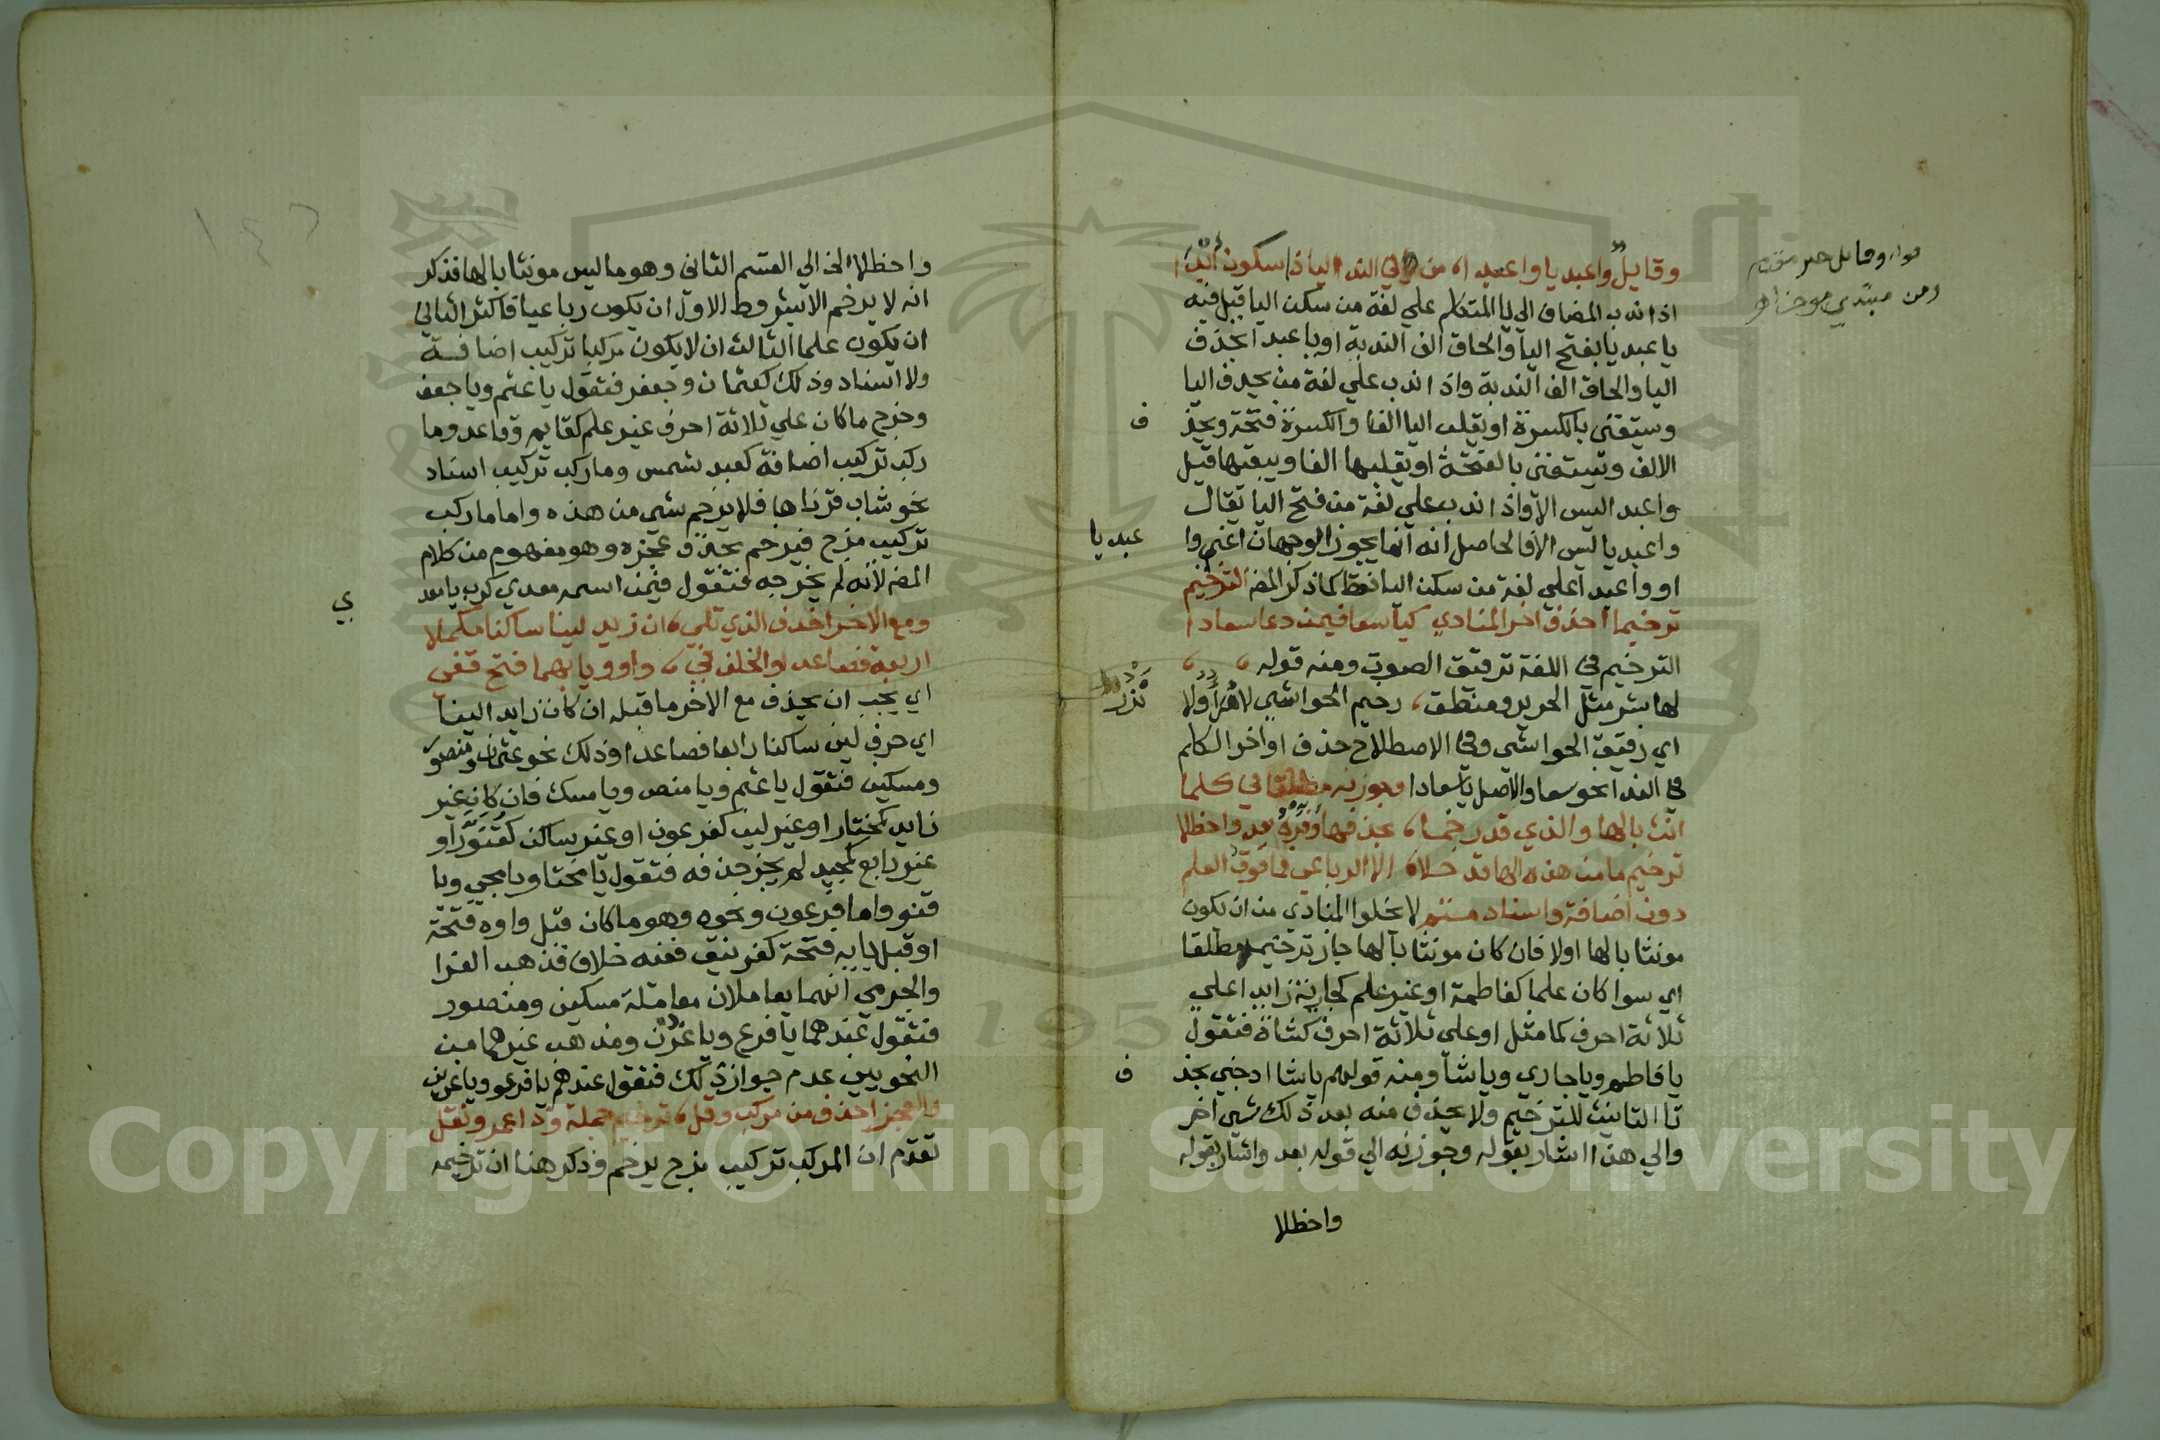 وقايل واعبديا واعبدا من في الندا اليا ذا سكون ابدا
اذا ندب المضاف الي يا المتكلم علي لغة من سكن اليا قيل فيه
يا عبديا بفتح اليا والحاق الف الندبة او يا عبدا بحذف
اليا والحاق الف الندبة واذا ندب علي لغة من يحذف اليا
ويستغني بالكسرة او يقلب اليا الفا والكسرة فتحة ويحذ
ف
الالف ويستغني بالفتحة او يقلبها الفا ويبقيها قيل
واعبدا ليس الا واذا ندب علي لغة من فتح اليا يقال
واعبديا ليس الا فالحاصل انه انما يجوز الوجهان اعني وا
عبديا
او واعبدا علي لغة من سكن اليا فقط كما ذكر المص الترخيم
ترخيما احذف اخر المنادي كيا سعا فيمن دعا سعادا
الترخيم في اللغة ترقيق الصوت ومنه قوله
لها بشر مثل الحرير ومنطق رخيم الحواشي لا هرا ولا
نزر
اي رقيق الحواشي وفي الاصطلاح حذف اواخر الكلم
في الندا نحو يا سعا والاصل يا سعادا وجوزنه مطلقا في كلما
انث بالها والذي قد رخما بحذفها وفره بعد واحظلا
ترخيم ما من هذه الها قد خلا الا الرباعي فما فوق العلم
دون اضافة واسناد متم لا يخلوا المنادي من ان يكون
مونثا بالها اولا فان كان مونثا بالها جاز ترخيمه مطلقا
اي سوا كان علما كفاطمة او غير علم كجارية زايدا علي
ثلاثة احرف كما مثل او علي ثلاثة احرف كشاة فتقول
يا فاطم ويا جاري ويا شا ومنه قولهم يا شا ادجني بحذ
ف
تا التانيث للترخيم ولا يحذف منه بعد ذلك شي اخر
والي هذا اشار بقوله وجوزنه الي قوله بعد واشار بقوله
واحظلا
واحظلا الخ الي القسم الثاني وهو ما ليس مونثا بالها فذكر
انه لا يرخم الا بشروط الاول ان يكون رباعيا فاكثر الثاني
ان يكون علما الثالث ان لا يكون مركبا تركيب اضافة
ولا اسناد وذلك كعثمان وجعفر فتقول يا عثم ويا جعف
وخرج ما كان علي ثلاثة احرف غير علم كقايم وقاعد وما
ركب تركيب اضافة كعبد شمس وما ركب تركيب اسناد
نحو شاب قرناها فلا يرخم شي من هذه واما ما ركب
تركيب مزج فيرخم بحذف عجزه وهو مفهوم من كلام
المص لانه لم يخرجه فتقول فيمن اسمه معدي كرب يا معد
ي
ومع الاخر احذف الذي تلي ان زيد لينا ساكنا مكملا
اربعة فصاعدا والخلف في واو ويا بهما فتح قفي
اي يجب ان يحذف مع الاخر ما قبله ان كان زايدا لينا
اي حرف لين ساكنا رابعا فصاعدا وذلك نحو عثمان ومنصور
ومسكين فتقول يا عثم ويا منص ويا مسك فان كان غير
زايد كمختار او غير لين كفرعون او غير ساكن كقنور او
غير رابع كمجيد لم يجز حذفه فتقول يا مختا ويا مجي ويا
قنو واما فرعون ونحوه وهو ما كان قبل واوه فتحة
او قبل يايه فتحة كغرنيق ففيه خلاف فذهب الفرا
والجرمي انهما يعاملان معاملة مسكين ومنصور
فتقول عندهما يا فرع ويا غرن ومذهب غيرهما من
النحويين عدم جواز ذلك فتقول عندهم يا فرعو ويا غرني
والعجز احذف من مركب وقل ترخيم جملة وذا عمرو نقل
تقدم ان المركب تركيب مزج يرخم وذكر هنا ان ترخيمه